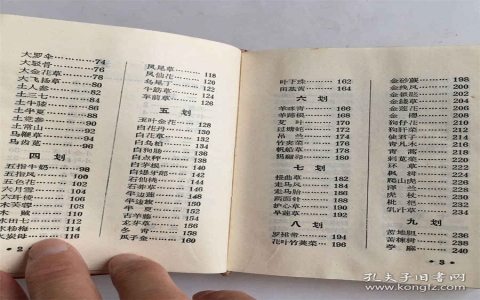 大罗伞……74
大驳骨……76
大金花草……78
大飞扬草……80
土人参……82
土三七……84
土牛膝……86
土半夏……88
土党参……90
土常山……92
马鞭草……94
马齿苋……96
四 划
五指牛奶……98
五指风……100
五色花……102
六月雪……104
六耳铃……106
木芙蓉……108
木贼……110
水田七……112
水杨梅……114
火炭母……116
• 2
凤尾草……118
凤仙花……120
乌尾丁……122
牛筋草……124
车前草……126
五 划
玉叶金花……128
白花丹……130
白乌桕……132
白狗肠……134
白点秤……136
白茅根……138
石仙桃……142
石荠草……144
华山矾……146
半边旗……148
半边莲……150
半夏……152
古羊藤……154
龙芽草……156
冬青……158
瓜子金……160
叶下珠……162
田基黄……164
六 划
羊咪青……166
羊蹄根……168
艾叶……170
过塘蛇……172
吊兰……174
竹夹菜……176
帆船草……178
七 划
扭曲草……182
走马风……184
走马胎……186
两面针……188
护心草……190
旱莲草……192
八 划
罗裙带……194
花叶竹荚菜……196
金砂蕨……198
金线风……200
金锁匙……202
金钱草……204
金莲花……206
金樱……208
狗仔花……210
狗肝菜……212
使君子……214
青凡木……216
青蒿……218
刺苋菜……220
昌草……222
枫树……224
昆山虎……226
泽兰……228
虎杖……230
枇杷……232
乳汁草……234
九 划
苦地胆……236
苦楝树……238
苧麻……240
• 3 •
孔夫子旧书网
www.kongfz.com